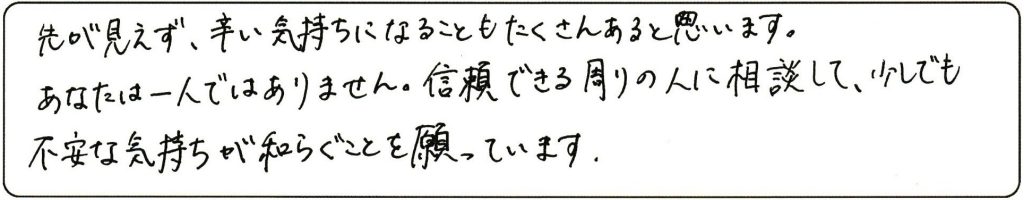 先が見えず、辛い気持ちになることもたくさんあると思います。
あなたは一人ではありません。信頼できる周りの人に相談して、少しでも
不安な気持ちが和らぐことを願っています.